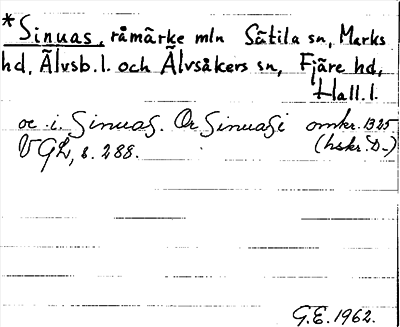 *Sinuas, råmärke mln Sätila sn, Marks
hd, Älvsb. l. och Älvsåkers sn, Fjäre hd,
Hall. l.
oc i Sinuas. Or Sinuasi omkr. 1325
VGL, s. 288. (hskr. D-)
G.E. 1962.